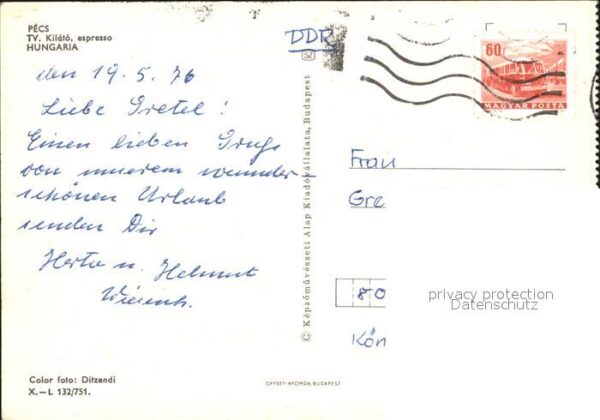 PÉCS
TV. Kilátó, espresso
HUNGARIA
DDR
60
MAGYAR POSTA
den 19.5.76
Liebe Gretel!
Einen lieben Gruß
von unserem wunder-
schönen Urlaub
senden Dir
Herta u. Helmut
© Képzőművészeti Alap Kiadóvállalata, Budapest
Frau
Gre
80
Kön
privacy protection
Datenschutz
Color foto: Ditzendi
X.—L 132/751.
OFFSET-NYOMDA, BUDAPEST